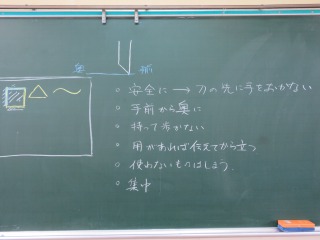 奥 手前
○ 安全に → 刀の先に手をおかない
○ 手前から奥に
○ 持って歩かない
○ 用があれば伝えてから立つ
○ 使わないものはしまう.
○ 集中